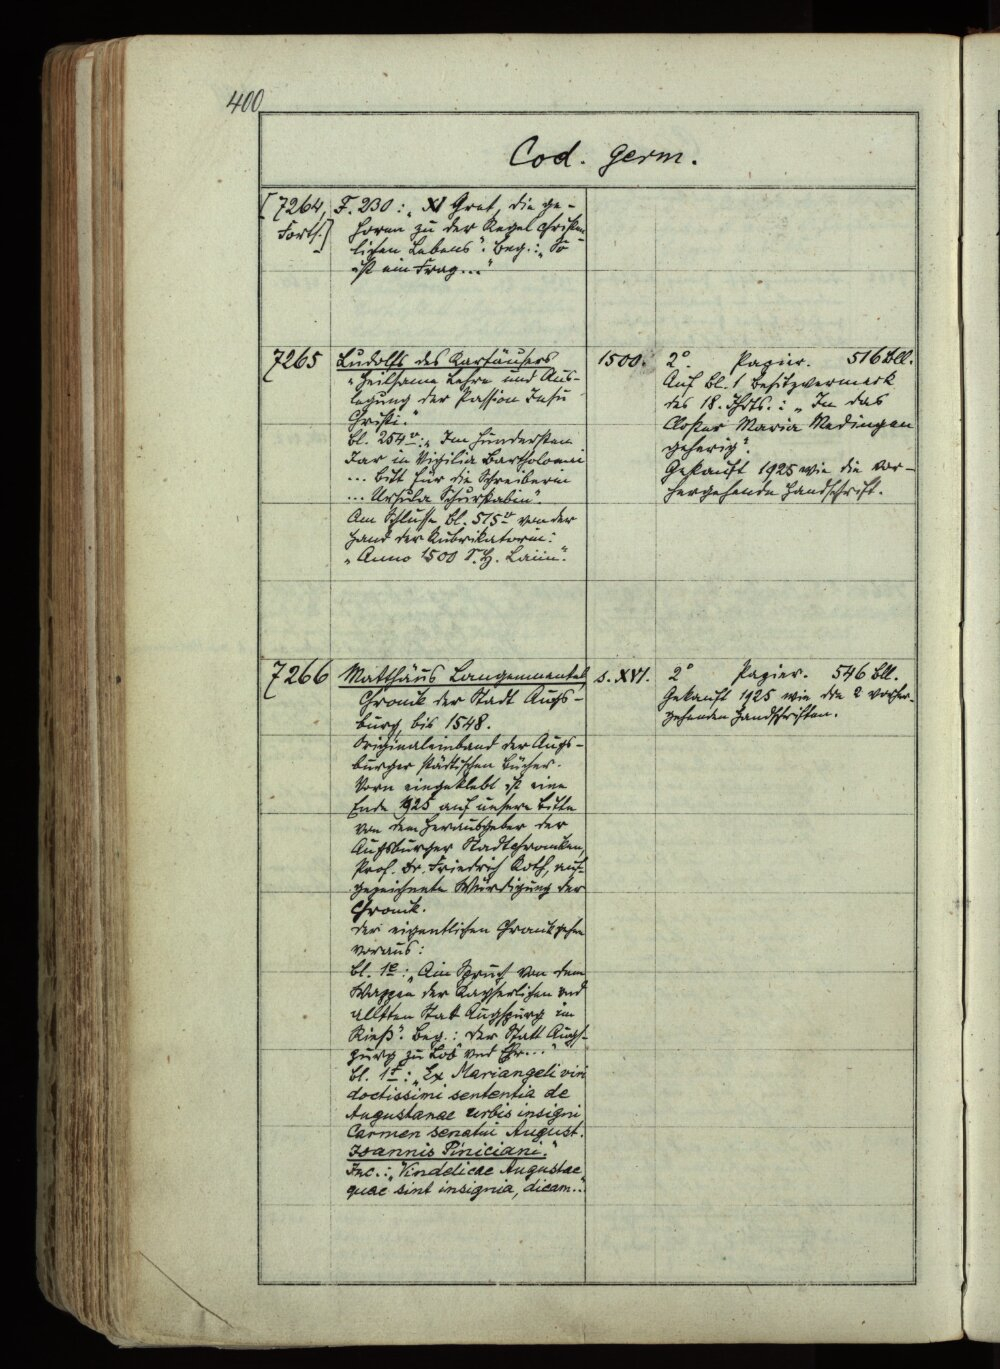 400
Cod. germ.
[7264, Forts.]
F. 230: „XI Grat, die ge-
horen zu der Regel christen
lichen Lebens". Beg.: „So
ist ein Frag..."
7265
Ludolfs des Kartäusers
„Heilsame Lehre und Aus-
legung der Passion Jesu
Christi."
Bl. 254v: „Im hundersten
Jar in Vigilia Bartholomei
... bitt für die Schreiberin
... Ursula Schurstabin".
Am Schlusse Bl. 515v von der
Hand der Rubrikatorin:
„Anno 1500 S. H.
1500.
2°. Papier. 516 Bll.
Auf Bl. 1 Besitzvermerk
des 18. Jhdts.: „In das
Closter Maria Medingen
geherig".
Gekauft 1925 wie die vor-
hergehende Handschrift.
7266
Matthäus Langenmantel
Chronik der Stadt Augs-
burg, bis 1548.
Originaleinband der Augs-
burger städtischen Bücher.
Vorn eingeklebt ist eine
Ende 1925 auf unsere Bitte
von dem Herausgeber der
Augsburger Stadtchroniken,
Prof. Dr. Friedrich Roth, auf-
gezeichnete Würdigung der
Chronik.
Der eigentlichen Chronik gehen
voraus:
Bl. 1r: „Ain Spruch von dem
Wappen der Kayserlichen vnd
alltten Stat Augspurg im
Rieß". Beg.: Der Statt Augs-
purg zu Lob vnd Ehr..."
Bl. 1v: „Ex Mariangeli viri
doctissimi sententia de
Augustanae urbis insigni
Carmen senatui August.
Joannis Piniciani."
Inc.: „Vindelicae Augustae
quae sint insignia, dicam..."
s. XVI.
2° Papier. 546 Bll.
Gekauft 1925 wie die 2 vorher-
gehenden Handschriften.